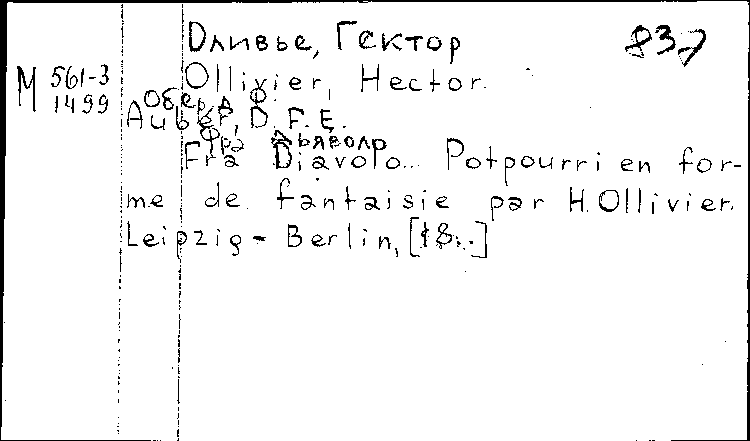 Оливье, Гектор 837
M 561-3
1499
Ollivier, Hector.
Обер, Д. Ф.
Auber, D. F. E.
Фра Дьяволо
Fra Diavolo... Potpourri en for-
me de fantaisie par H. Ollivier.
Leipzig - Berlin, [18..]